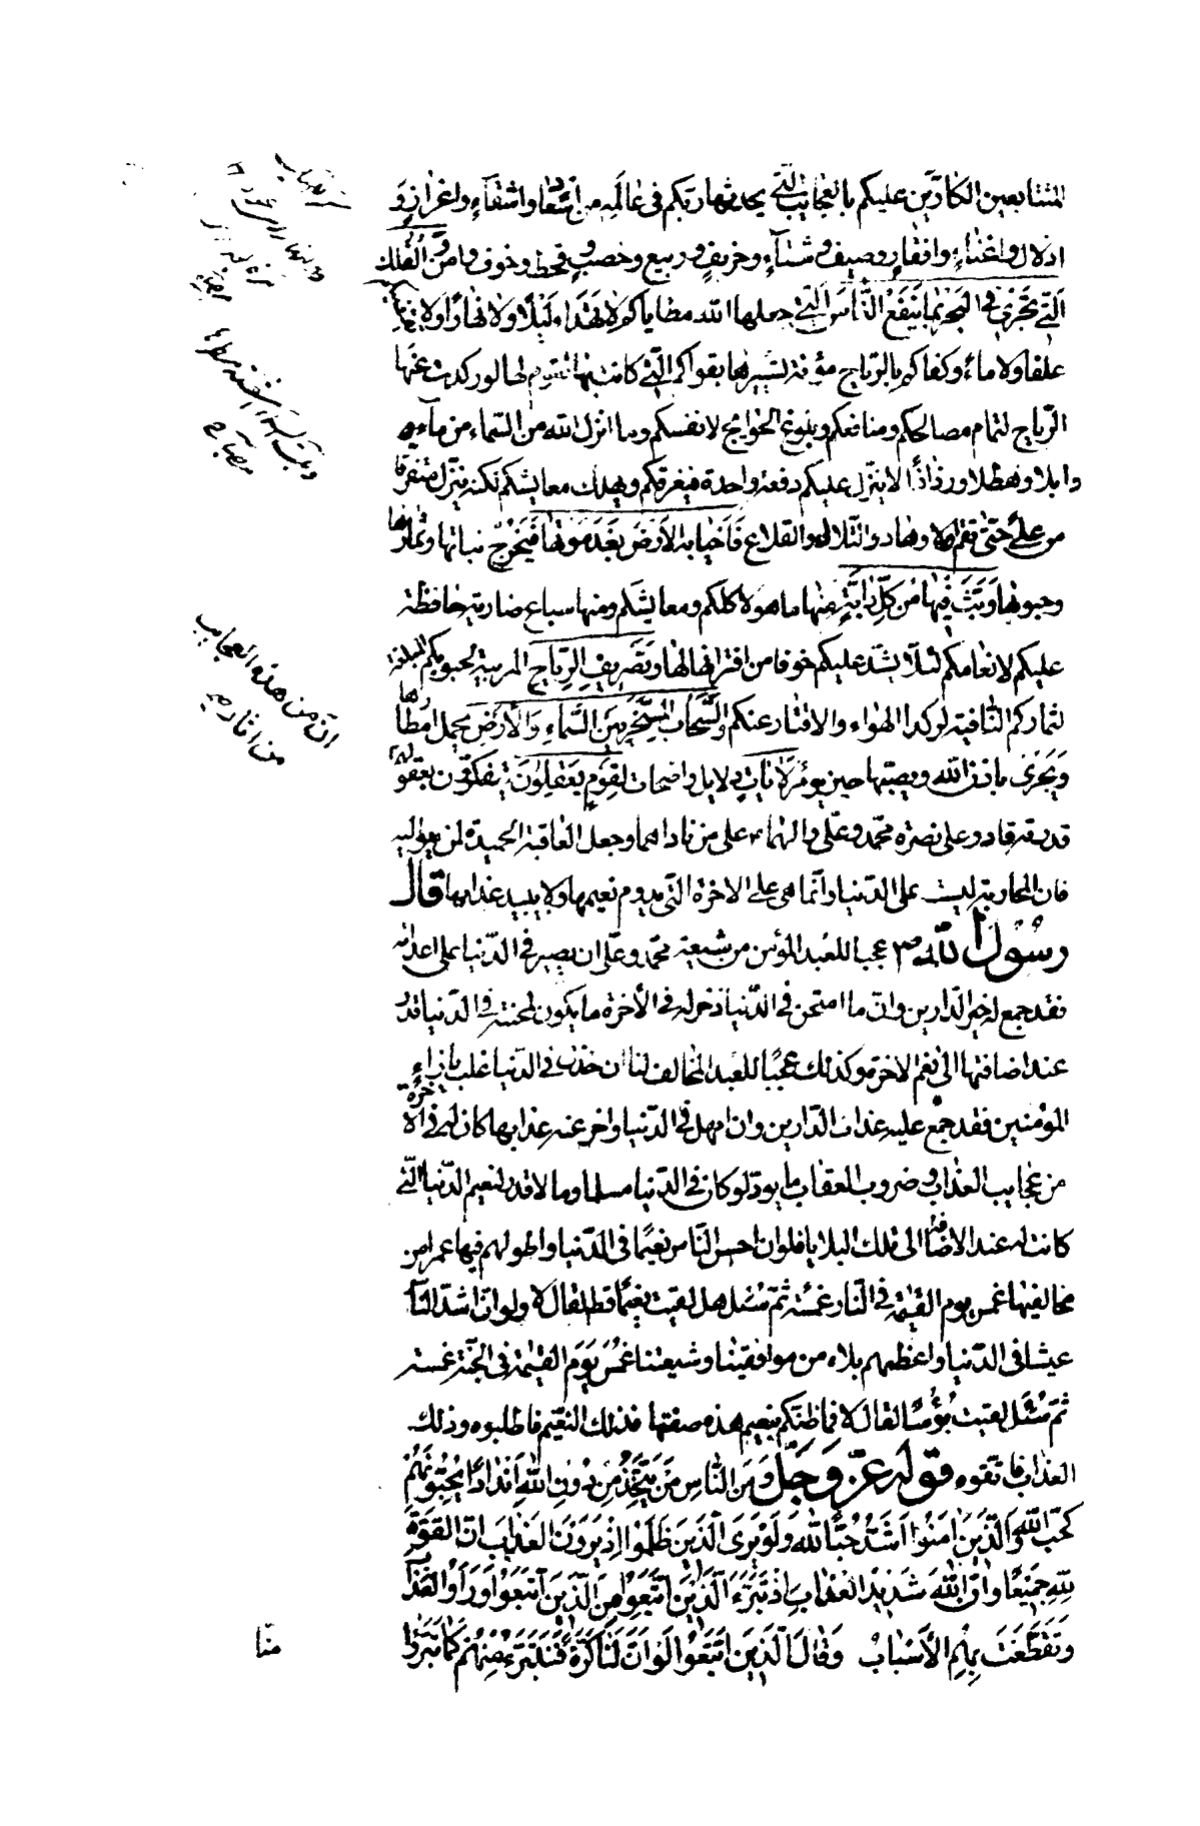 المتتابعين الكادّين عليكم بالعجايب الّتي يحدثها ربّكم في عالمه من اسعاد واشقآء واعزاز و
اذلال واغناء وافقار وصيف وشتآء وخريف وربيع وخصب وقحط وخوف وامن والفلك
الّتي تجري في البحر بما ينفع النّاس الّتي جعلها الله مطاياكم لا تهدء ليلا ولا نهارا ولا
علفا ولا ماء وكفاكم بالرّياح مؤنة تسييرها بقواكم الّتي كانت لا تقوم لها لو ركدت عنها
الرّياح لتمام مصالحكم ومنافعكم وبلوغ الحوايج لانفسكم وما انزل الله من السّماء من مآء
وابلا وهطلا ورذاذا لا ينزل عليكم دفعة واحدة فيغرقكم ويهلك معايشكم لكنه ينزل متفرقا
من علي حتّى تعم الاوهاد والتّلال والقلاع فاحيا به الارض بعد موتها فيخرج نباتها وثمارها
وحبوبها وبثّ فيها من كلّ دابّة منها ما هو لاكلكم ومعايشكم ومنها سباع ضارية حافظة
عليكم لانعامكم لئلّا يشذّ عليكم خوفا من افتراسها لها وتصريف الرّياح المربية لحبوبكم المبلغة
لثماركم النّافية لركد الهواء والاقتار عنكم والسّحاب المسخّر بين السّماء والارض يحمل امطارها
ويجري باذن الله ويصبّها حين يؤمر لآيات دلايل واضحات لقوم يعقلون يتفكّرون بعقولهم
قدرته قادر على نصرة محمّد وعليّ وآلهما على من ناداهما وجعل العاقبة الحميدة لمن يواليه
فان المجازية ليست على الدّنيا وانّما هي على الاخرة الّتي يدوم نعيمها ولا يبيد عذابها قال
رسول الله ص عجبا للعبد المؤمن من شيعة محمّد وعليّ ان يصير في الدّنيا على اعدائه
فقد جمع له خير الدّارين وان ما امتحن في الدّنيا ذخر له في الآخرة ما يكون لمحنته في الدّنيا قدر
عند اضافتها الى نعم الاخرة وكذلك عجبا للعبد المخالف لنا ان خذل في الدّنيا وغلب بازاء
المؤمنين فقد جمع عليه عذاب الدّارين وان امهل في الدّنيا واخر عنه عذابها كان له في الآخرة
من عجايب العذاب وضروب العقاب ما يودّ لو كان في الدّنيا مسلما وما لا قدر لنعيم الدّنيا الّتي
كانت له عند الاضافة الى تلك البلايا فلو ان احسن النّاس نعيما في الدّنيا واطولهم فيها عمرا من
مخالفينا غمس يوم القيمة في النّار غمسة ثمّ سئل هل لقيت نعيما قط لقال لا ولو انّ اشدّ النّاس
عيشا في الدّنيا واعظمهم بلاء من موافقينا وشيعتنا غمس يوم القيمة في الجنّة غمسة
ثمّ سئل لقيت بؤسا لقال لا فما ظنّكم بنعيم هذه صفتها فذلك النّعيم فاطلبوه وذلك
العذاب فاتّقوه قوله عزّ وجلّ ومن النّاس من يتّخذ من دون الله اندادا يحبّونهم
كحبّ الله والّذين امنوا اشدّ حبّا لله ولو يرى الّذين ظلموا اذ يرون العذاب انّ القوّة
لله جميعا وانّ الله شديد العذاب اذ تبرّء الّذين اتّبعوا من الّذين اتّبعوا وراوا العذاب
وتقطّعت بهم الاسباب وقال الّذين اتّبعوا لو انّ لنا كرّة فنتبرّء منهم كما تبرّؤا
منّا
انّ من هذه العجايب
من اثار